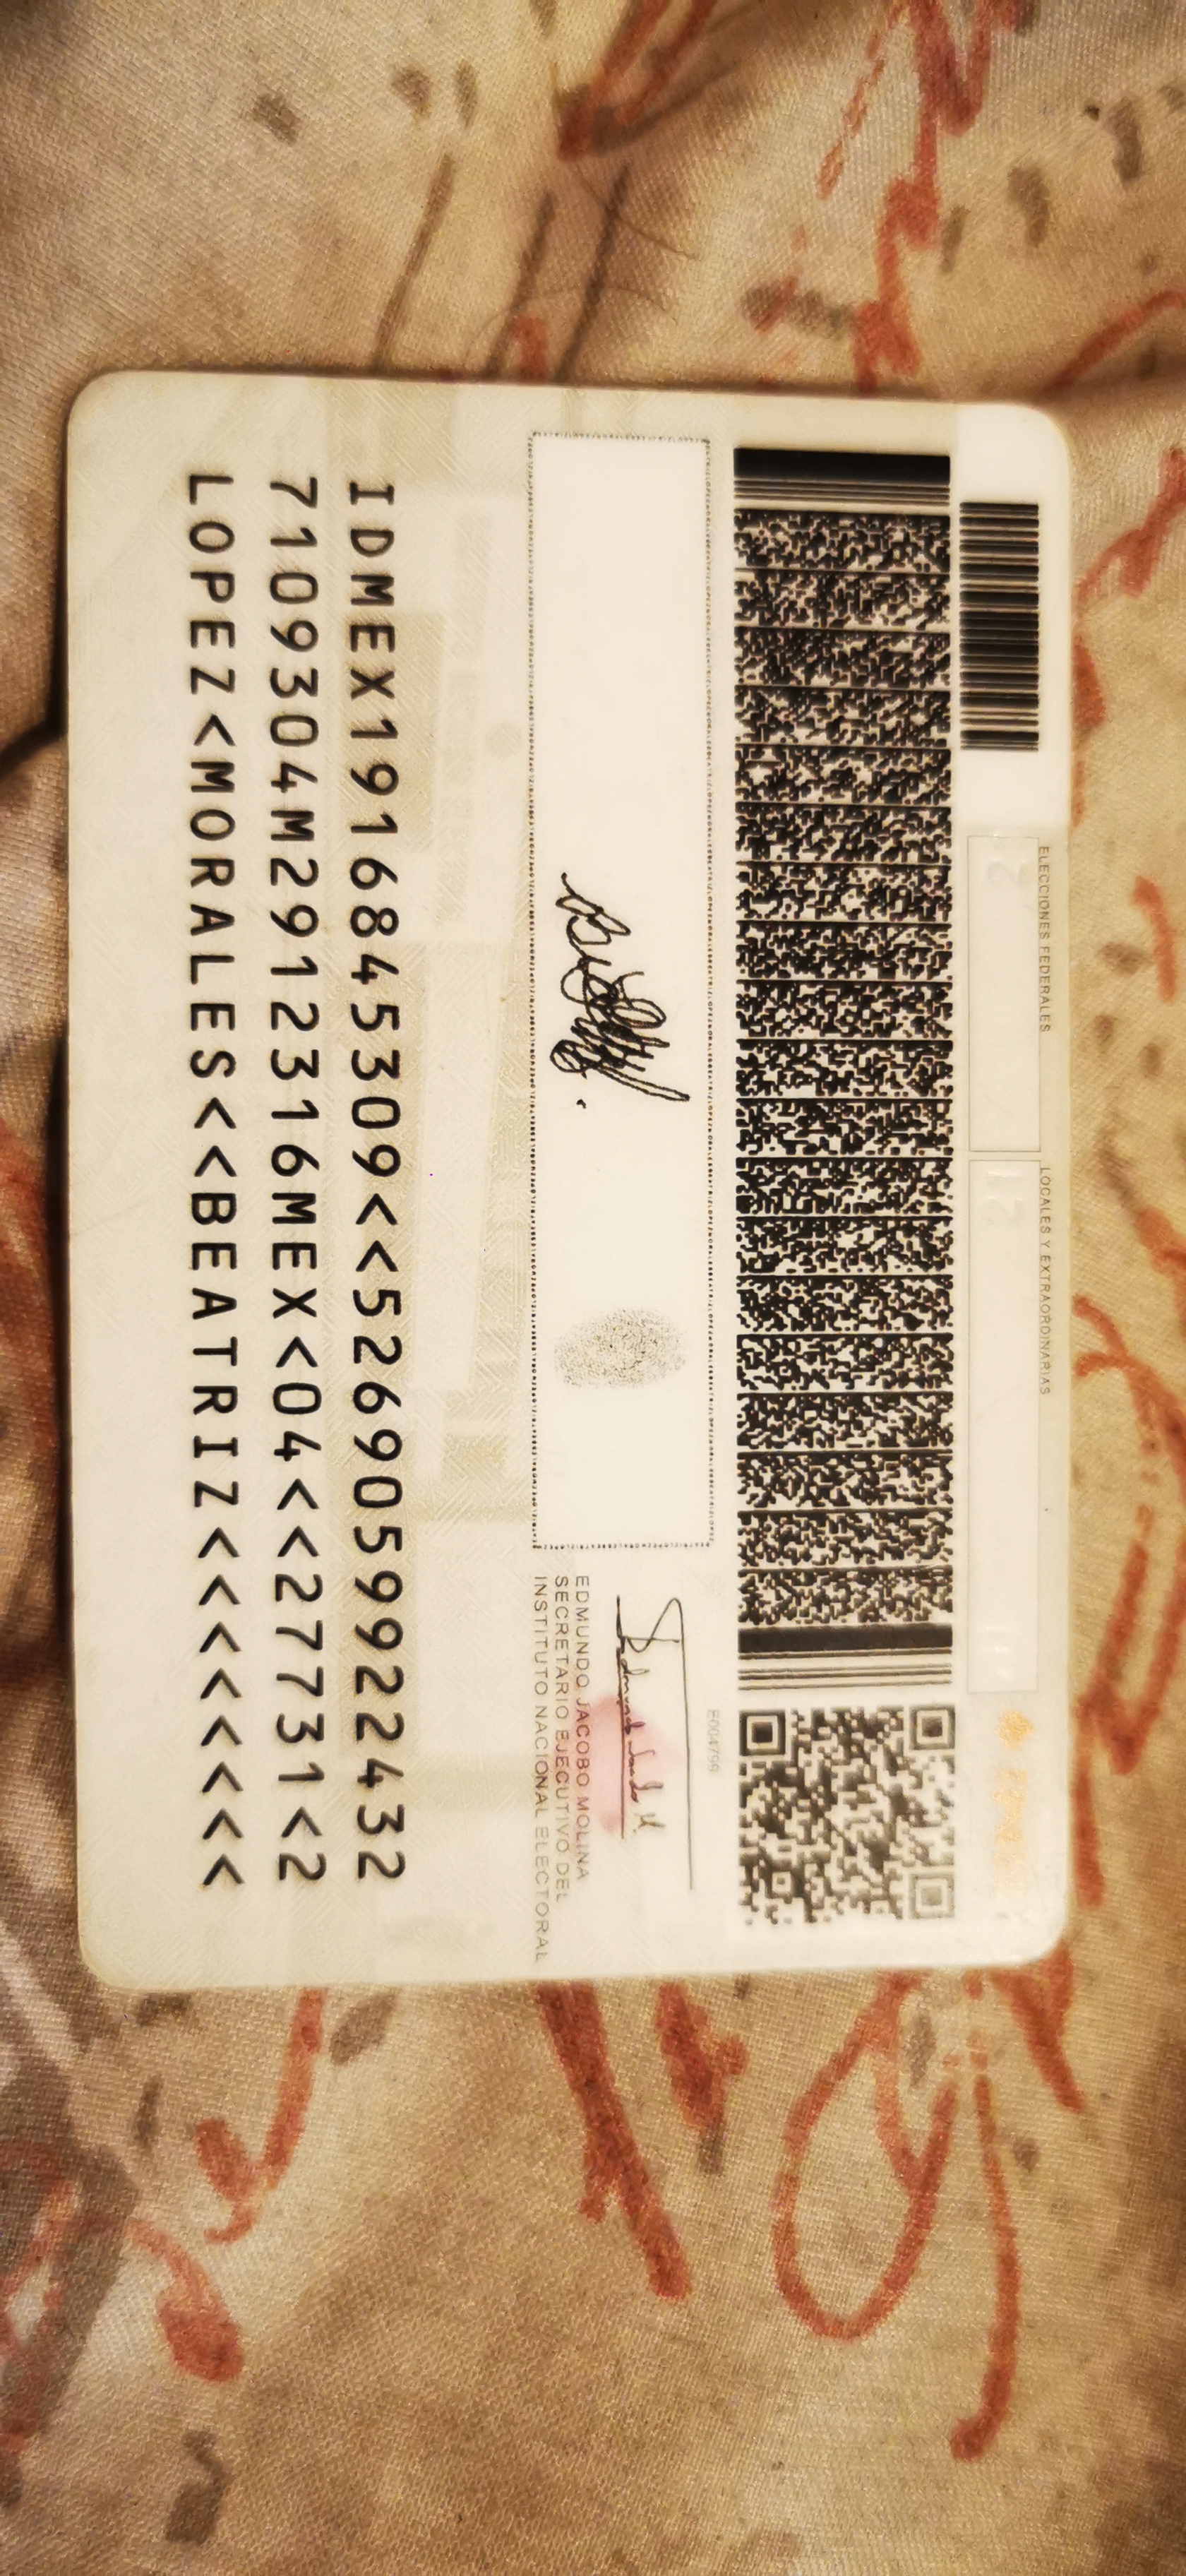 ELECCIONES FEDERALES
LOCALES Y EXTRAORDINARIAS
E004799
EDMUNDO JACOBO MOLINA
SECRETARIO EJECUTIVO DEL
INSTITUTO NACIONAL ELECTORAL
IDMEX1916845309<<5269059922432
7109304M2912316MEX<04<<27731<2
LOPEZ<MORALES<<BEATRIZ<<<<<<<<